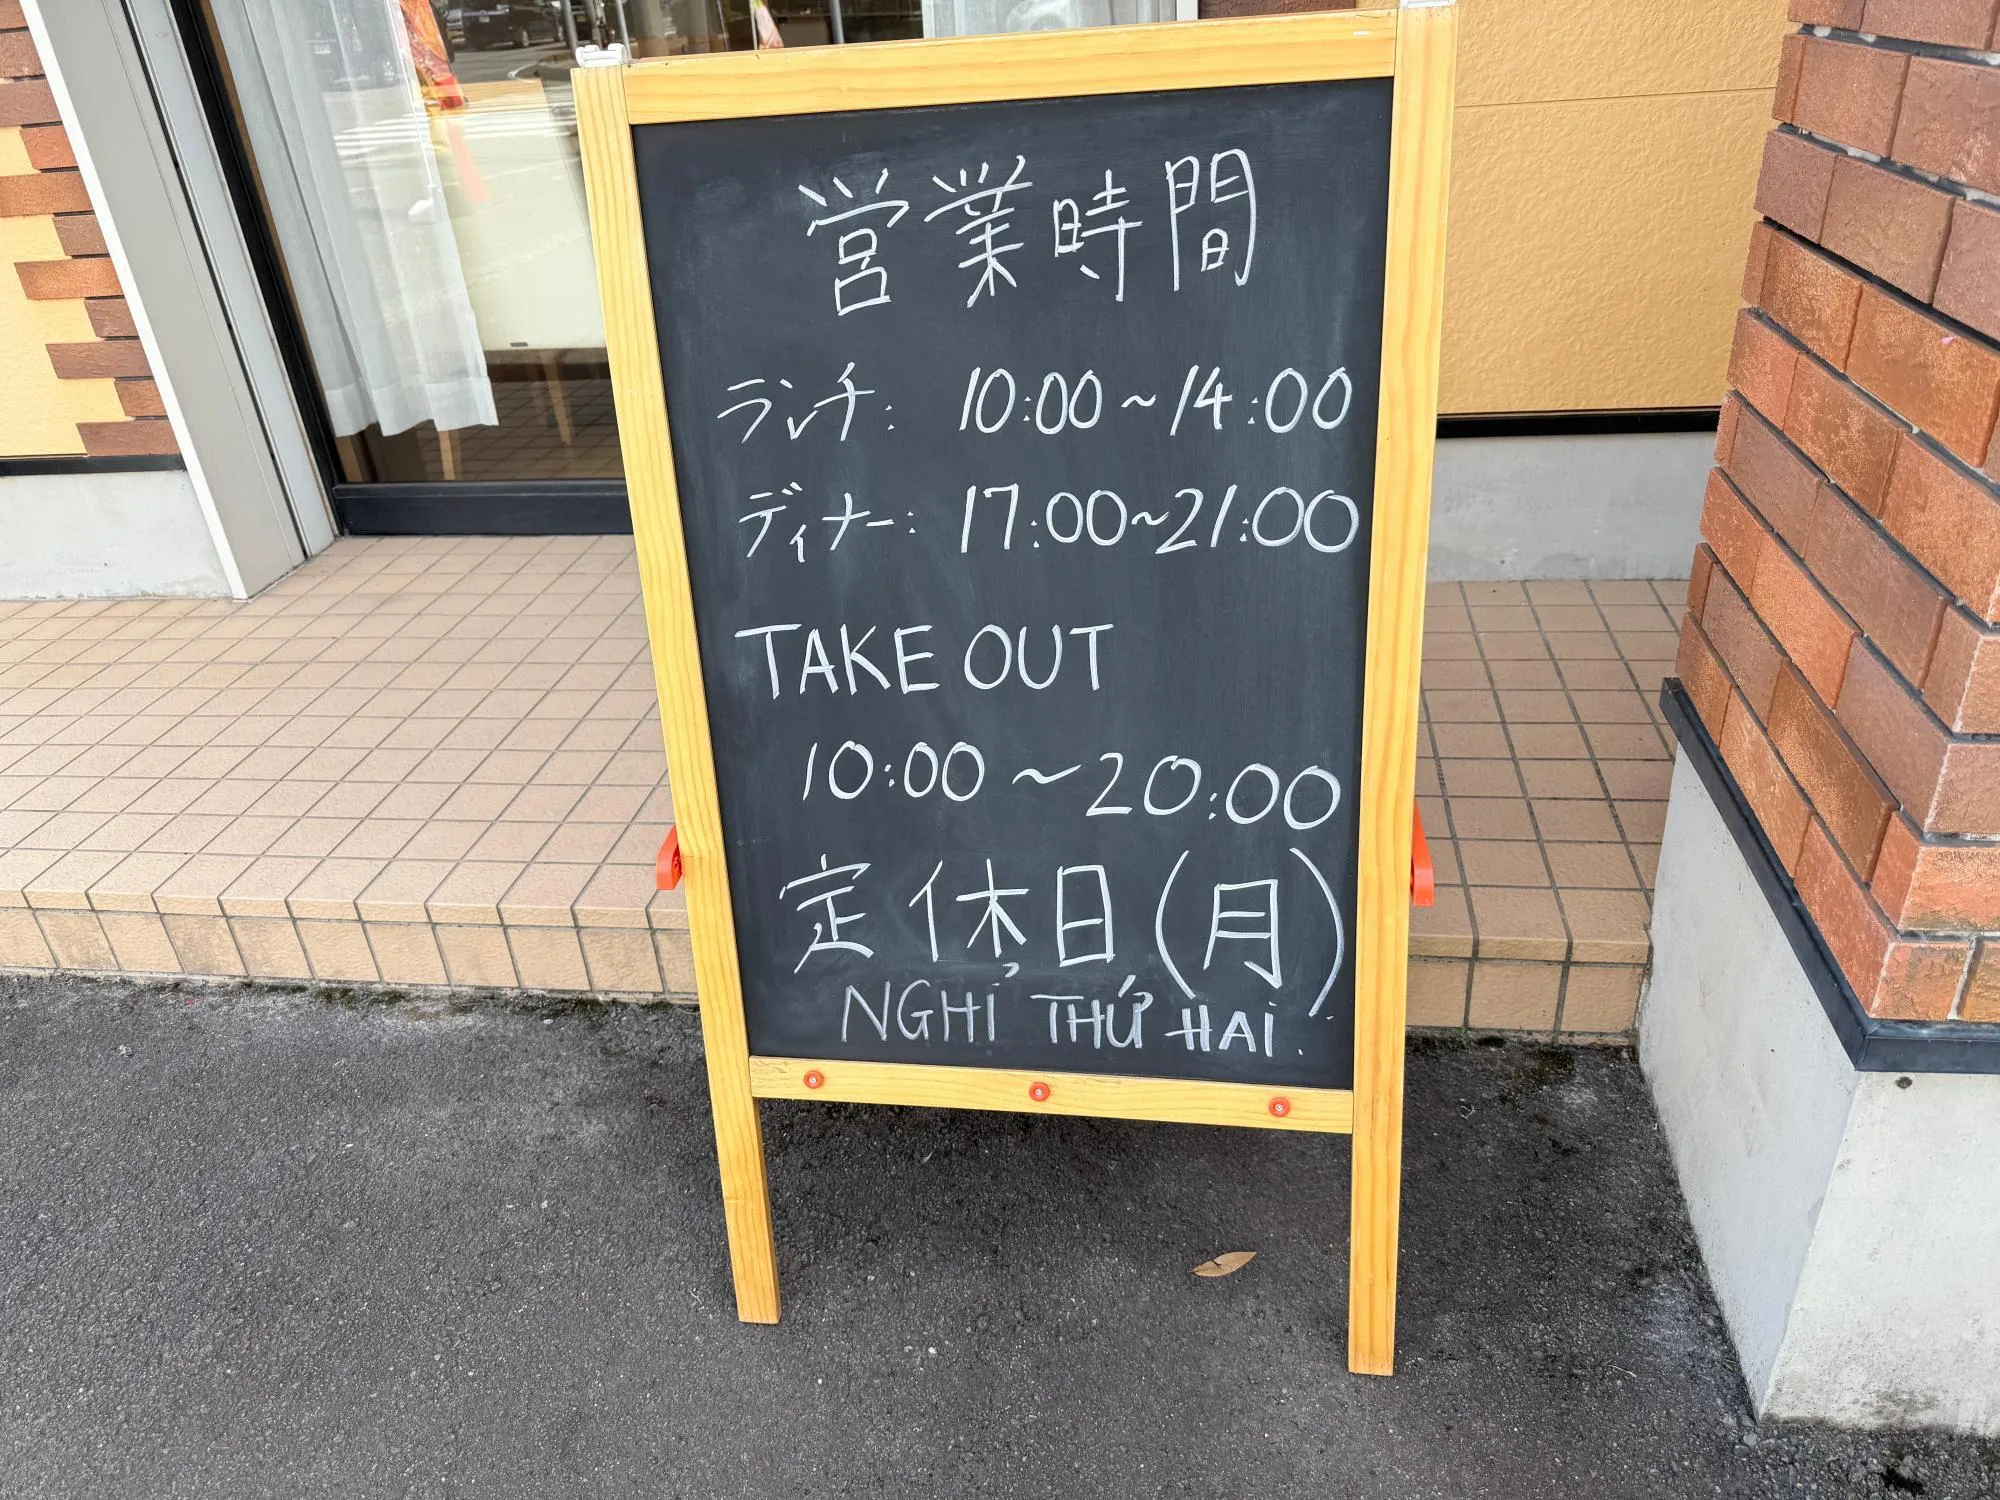 営業時間
ランチ: 10:00~14:00
ディナー: 17:00~21:00
TAKE OUT
10:00~20:00
定休日(月)
NGHỈ THỨ HAI.